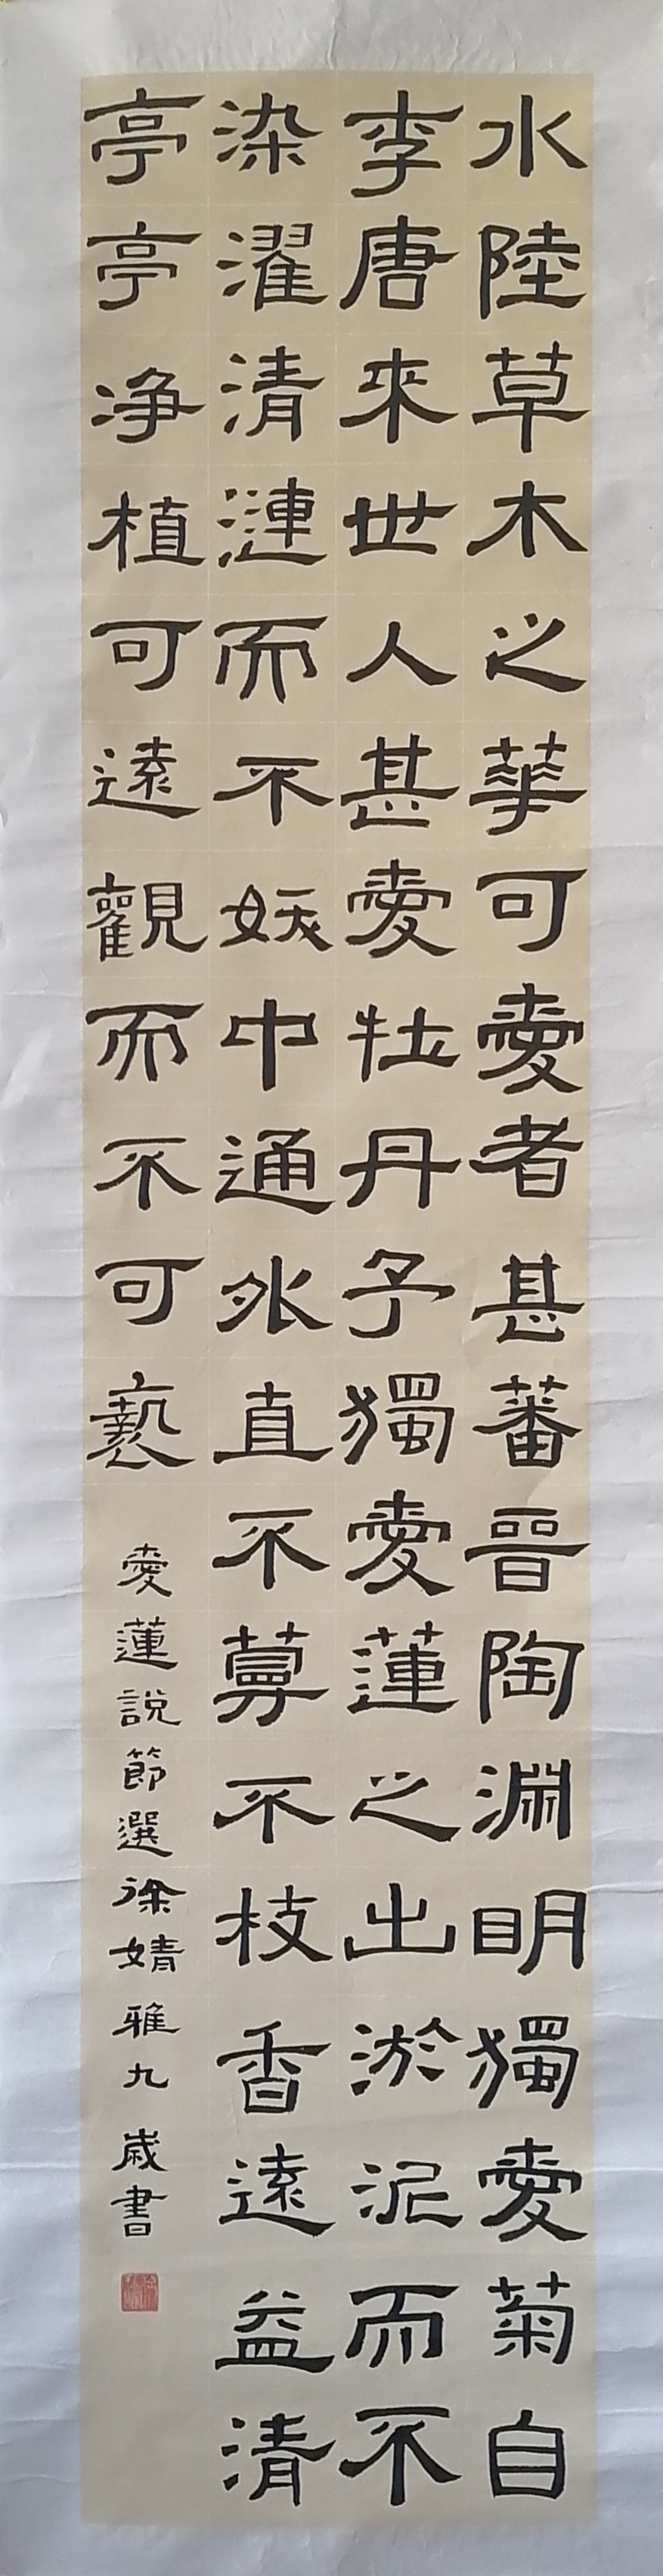 水陸草木之華可愛者甚蕃晉陶淵明獨愛菊自
李唐來世人甚愛牡丹予獨愛蓮之出淤泥而不
染濯清漣而不妖中通外直不蔓不枝香遠益清
亭亭净植可遠觀而不可褻
愛蓮說節選徐婧雅九歲書